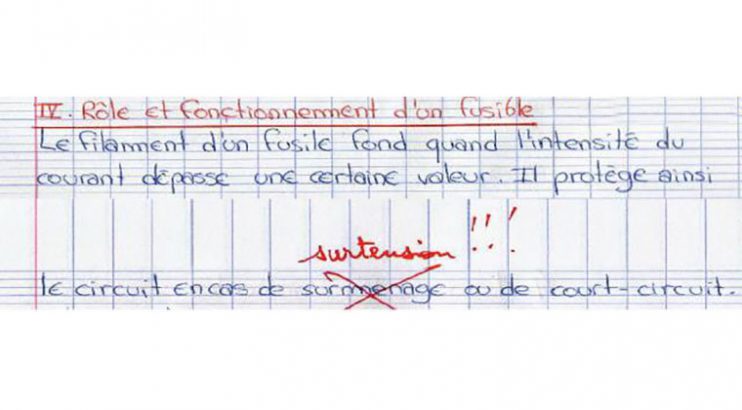 IV. Rôle et fonctionnement d'un fusible
Le filament d'un fusile fond quand l'intensité du
courant dépasse une certaine valeur. Il protège ainsi
surtension !!!
le circuit en cas de surmenage ou de court-circuit.